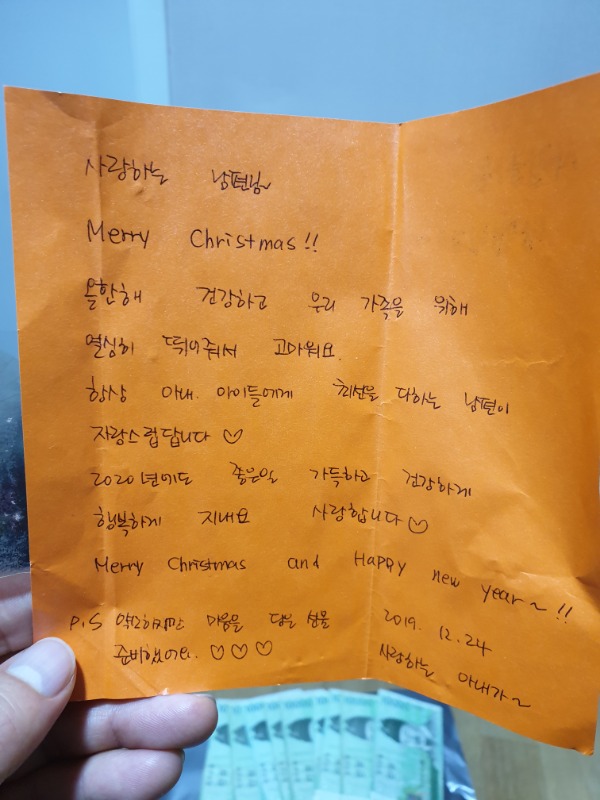 사랑하는 남편님~
Merry Christmas!!
올한해 건강하고 우리 가족을 위해
열심히 뛰어줘서 고마워요.
항상 아내. 아이들에게 최선을 다하는 남편이
자랑스럽답니다 ♡
2020년에도 좋은일 가득하고 건강하게
행복하게 지내요 사랑합니다 ♡
Merry Christmas and Happy new year~!!
P.S 약소하지만 마음을 담은 선물
준비했어요. ♡ ♡ ♡
2019. 12. 24
사랑하는 아내가~